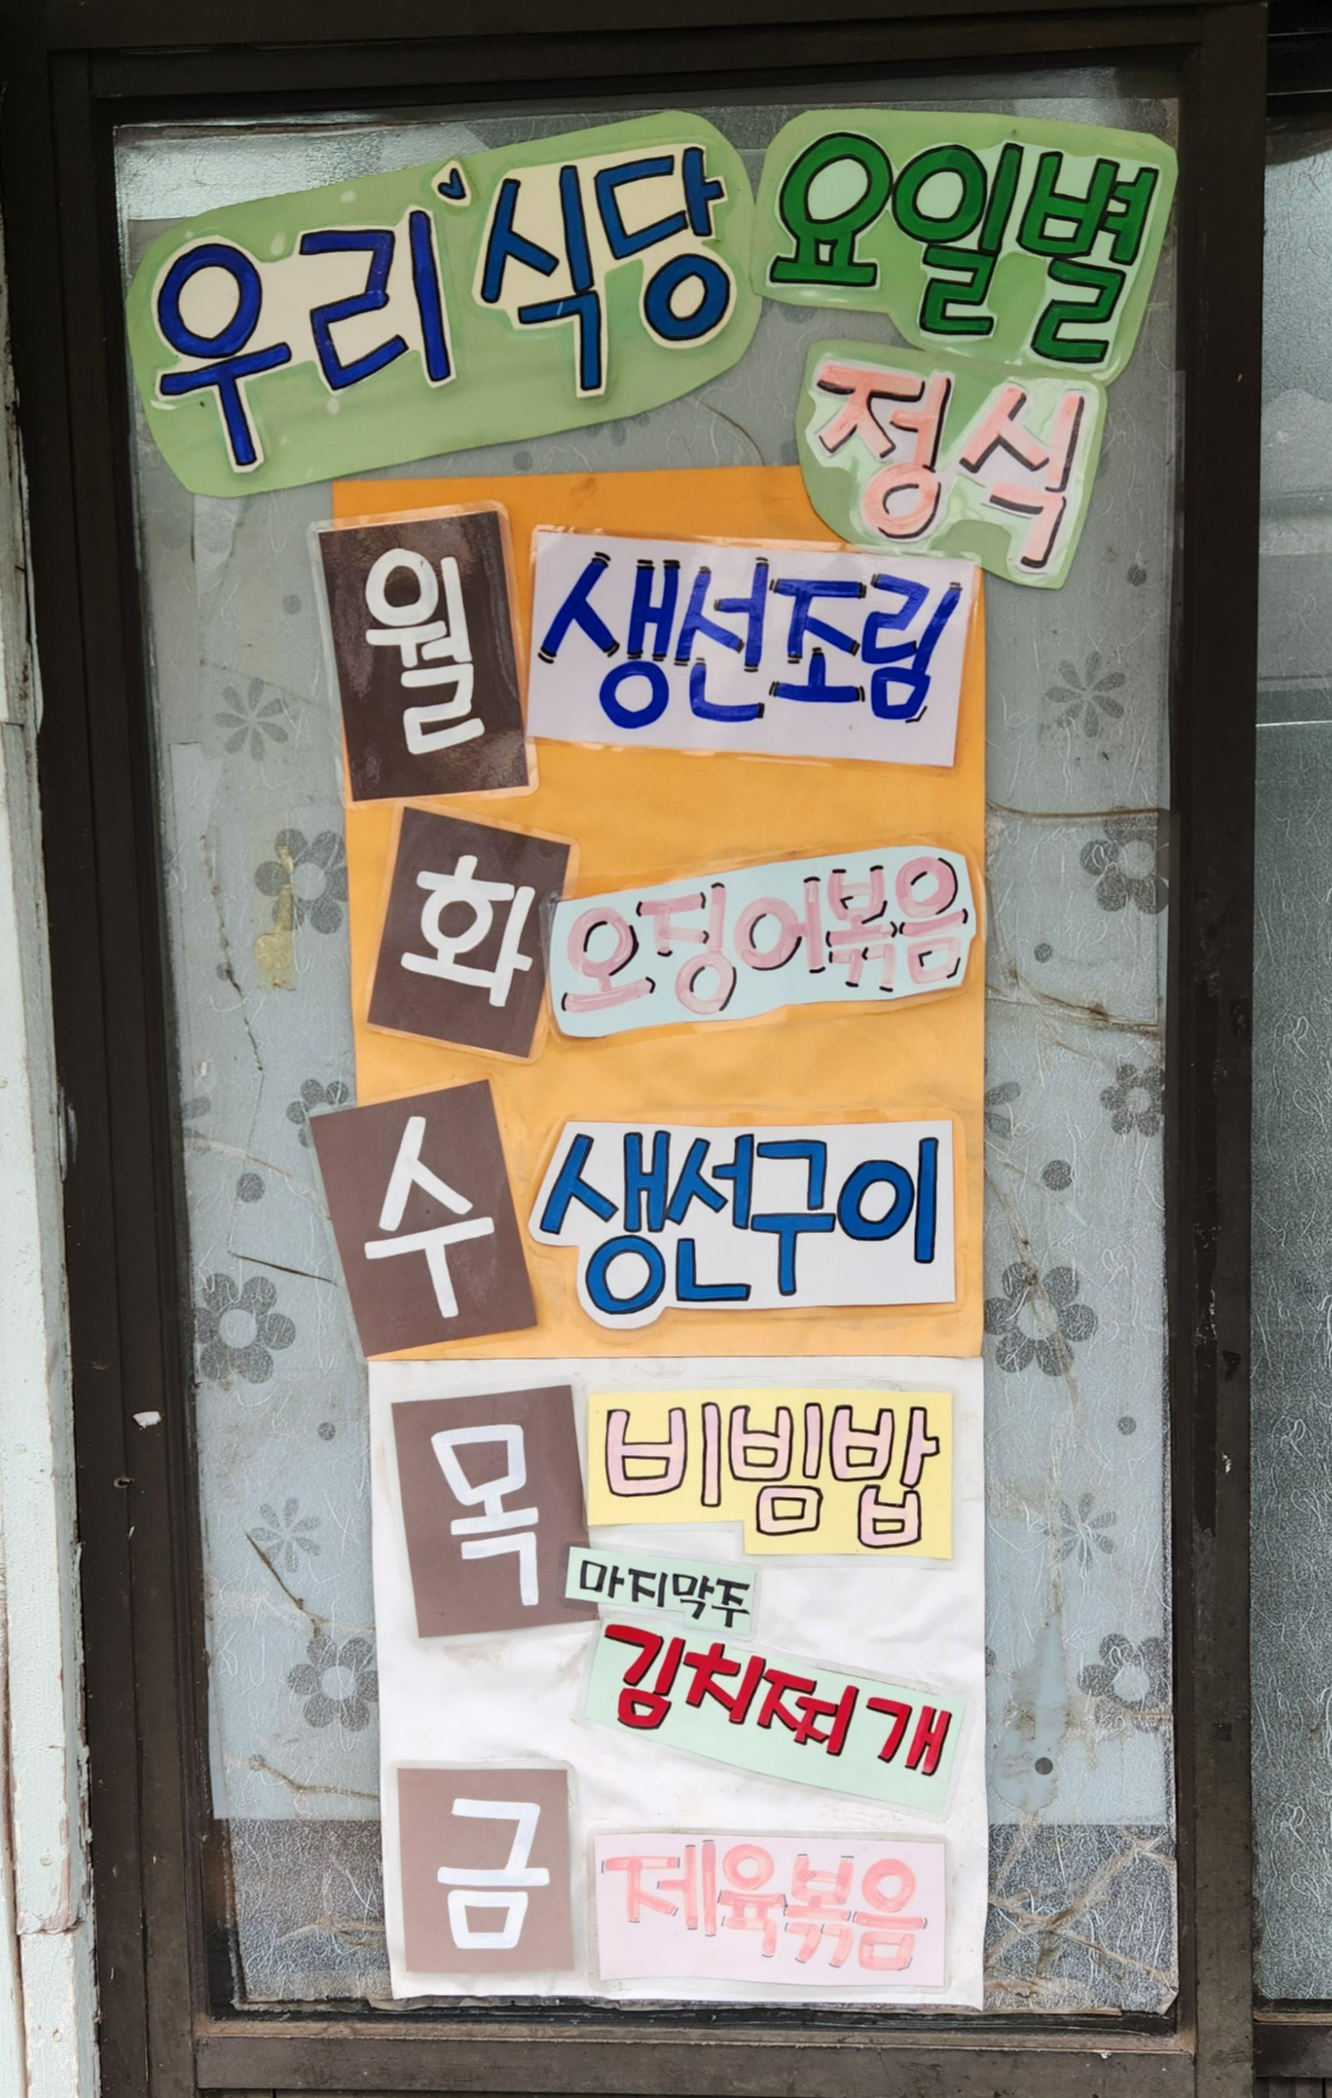 우리 식당 요일별
정식
월 생선조림
화 오징어볶음
수 생선구이
목 비빔밥
마지막주
김치찌개
금 제육볶음